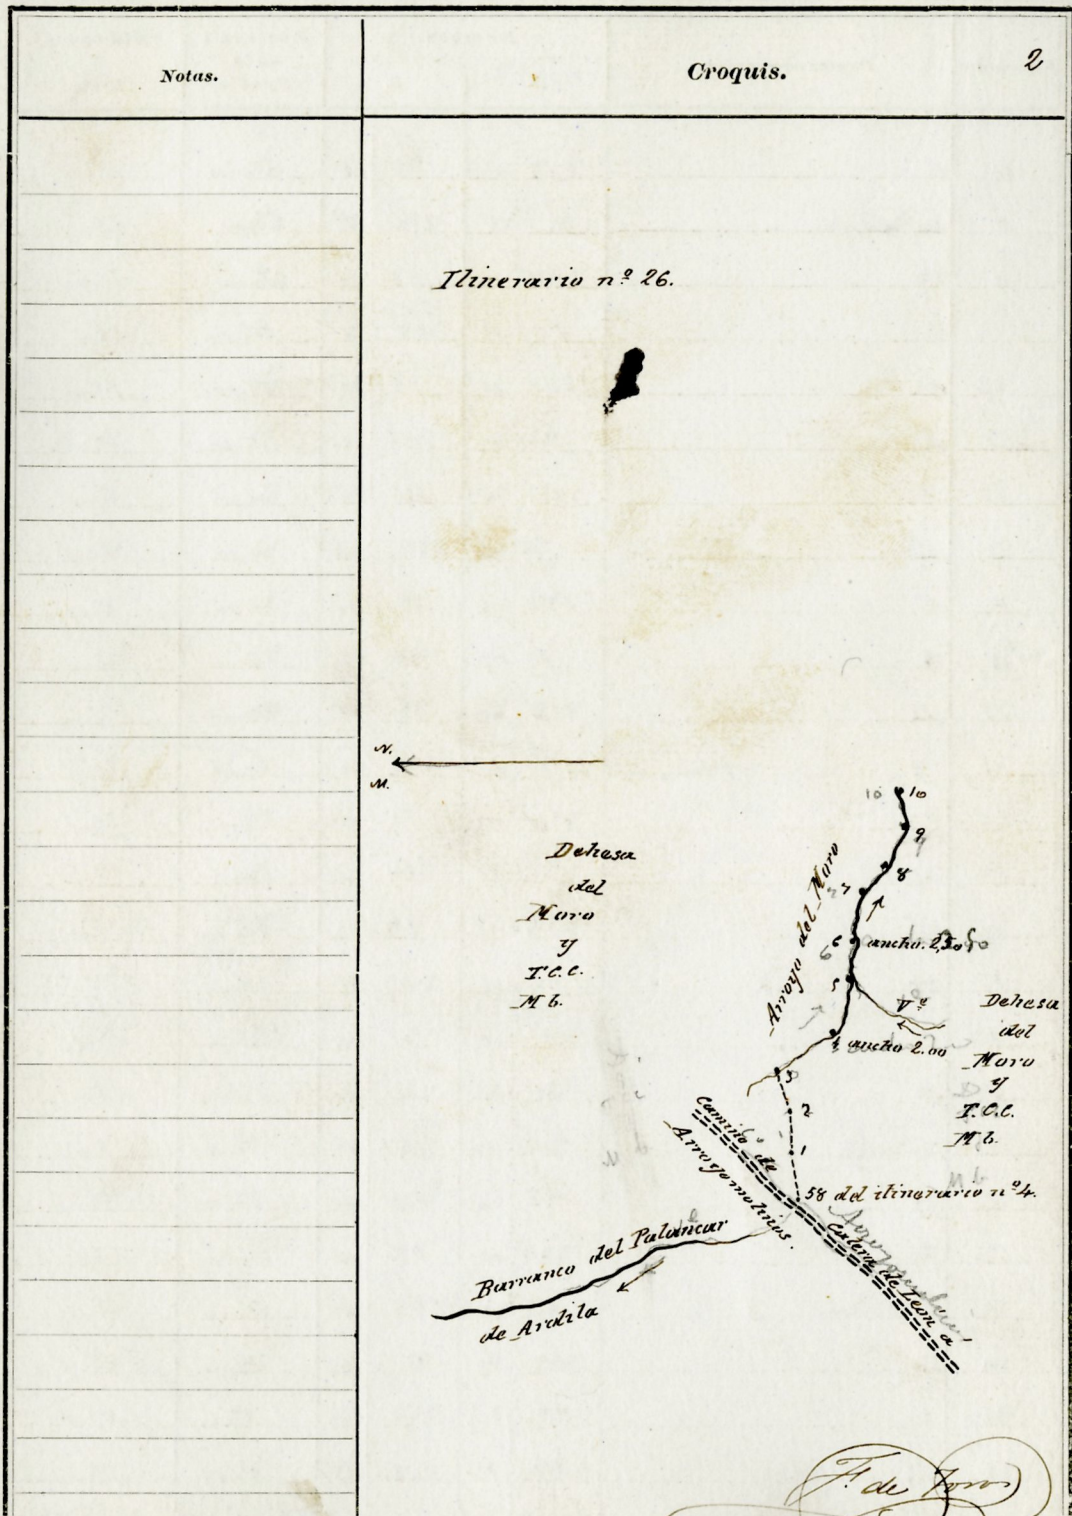 Notas.
Croquis.
2
Itinerario nº 26.
N.
M.
Dehesa
del
Moro
y
T.C.C.
M b.
Arroyo del Moro
10 10
9
8
7
6 ancho. 2,50
5
Vª
4 ancho 2.00
3
2
1
Dehesa
del
Moro
y
T.C.C.
M b.
58 del itinerario nº 4.
Camino de
Calera de Leon a
Arroyomolinos.
Barranco del Palancar
de Ardila
F. de Toros